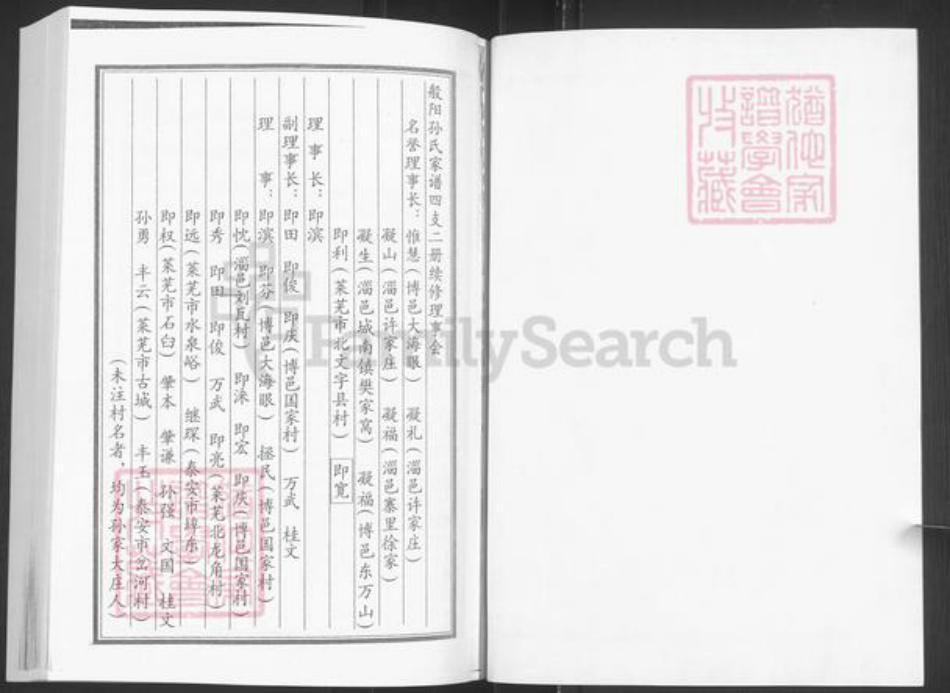 般阳孙氏家谱四支二册续修理事会
名誉理事长：惟慧（博邑大海眼） 凝礼（淄邑许家庄）
凝山（淄邑许家庄） 凝福（淄邑寨里徐家）
凝生（淄邑城南镇樊家窝） 凝福（博邑东万山）
即利（莱芜市北文字县村） 即宽
理事长：即滨
副理事长：即田 即俊 即庆（博邑国家村） 万武 桂文
理事：即滨 即芬（博邑大海眼） 拯民（博邑国家村）
即忱（淄邑刘瓦村） 即涞 即宏 即庆（博邑国家村）
即秀 即田 即俊 万武 即亮（莱芜北龙角村）
即远（莱芜市水泉峪） 继琛（泰安市埠东）
即权（莱芜市石臼） 肇本 肇谦 孙强 文国 桂文
孙勇 丰云（莱芜市古城） 丰玉（泰安市岔河村）
（未注村名者，均为孙家大庄人）
FamilySearch
猶他家
譜學會
收藏